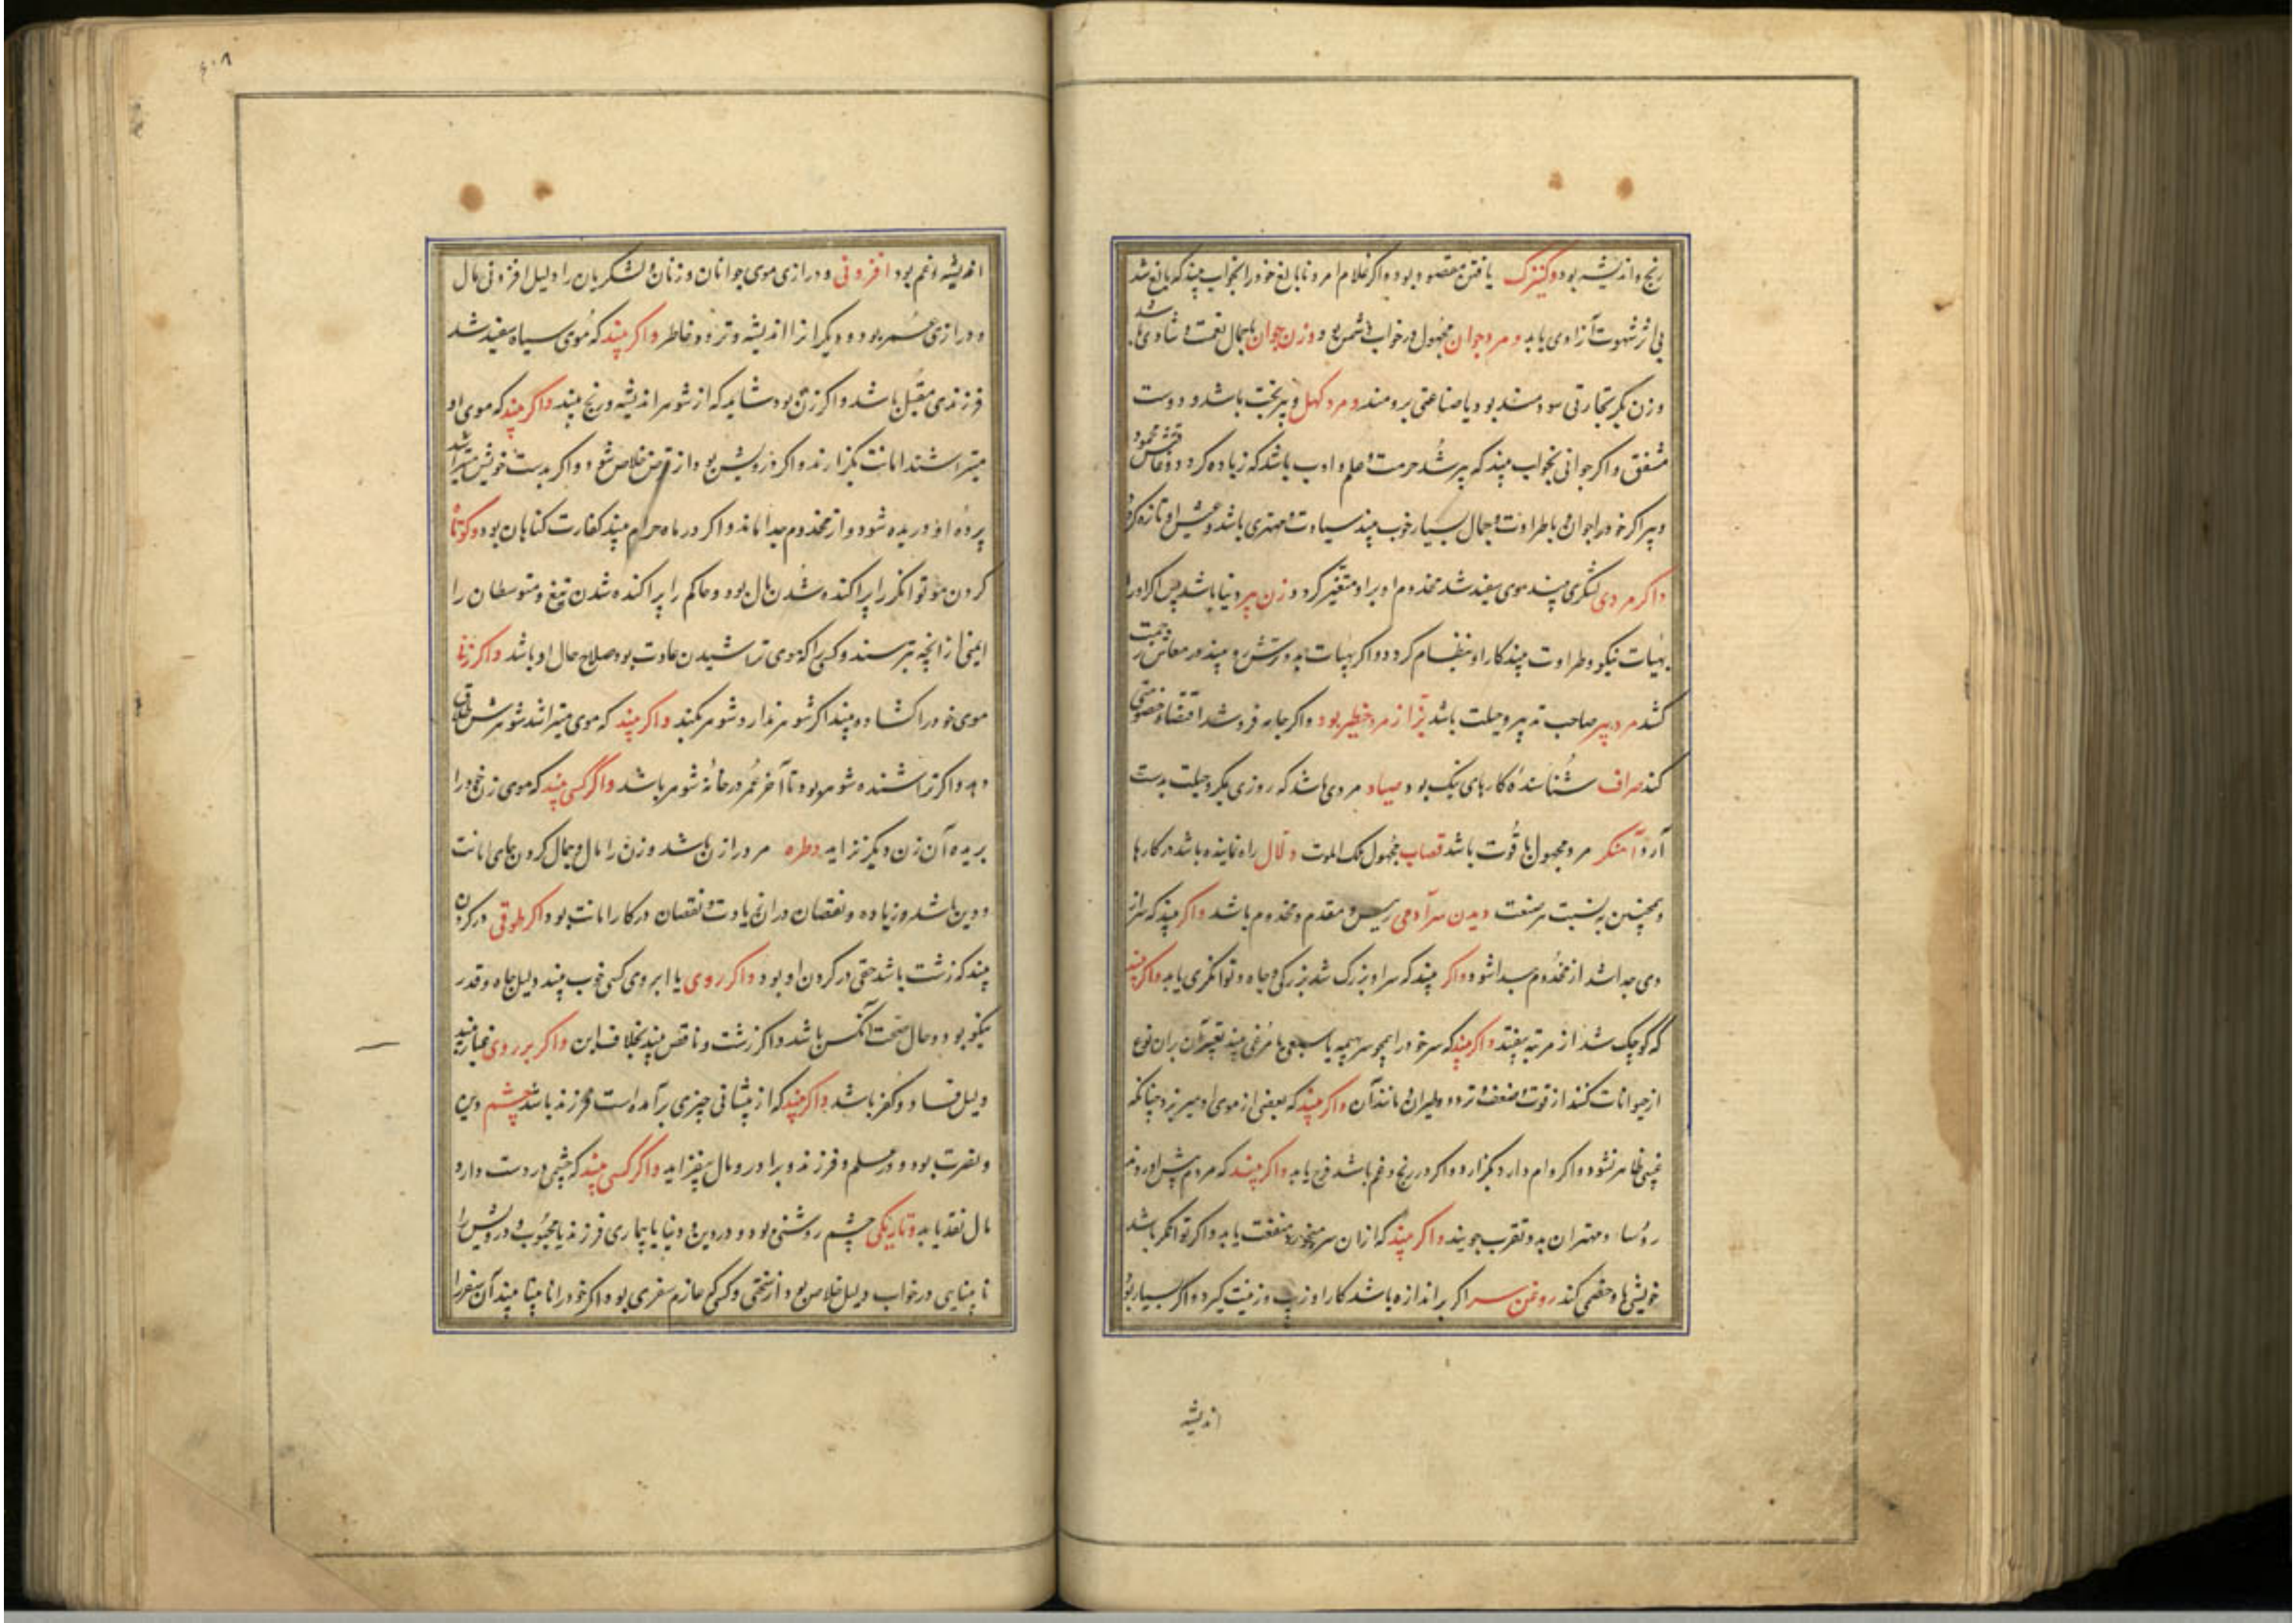 رنج و اندیشه بود و کنیزک یافتن مقصود بود و اکر غلام امرد نابالغ خود را بخواب بیند که بالغ شد
بی اثر شهوت آزادی یابد و مرد جوان مجهول در خواب دشمن بود و زن جوان باجمال نعمت و شادی باشد
و زن بکر تجارتی سودمند بود یا صناعتی برومند و مرد کهل و پیر بخت باشد و دوست
مشفق و اکر جوانی بخواب بیند که پیر شد حرمت و علم و ادب باشد که زیاده کردد
و پیر اکر خود را جوان باطراوت و جمال بسیار خوب بیند سیادت و مهتری باشد و عیش او تازه کردد
و اکر مردی لشکری بیند موی سفید شد مخدوم او بر او متغیر کردد و زن پیر دنیا باشد پس اکر او را
بهیات نیکو و طراوت بیند کار او منظام کردد و اکر بهیات بد و ترش رو بیند در معاش زحمت
کشد مرد پیر صاحب تدبیر و حیلت باشد بزاز مرد خطیر بود و اکر جامه فروشد اقتضاء خصومتی
کند صراف شناسندهٔ کارهای نیک بود و صیاد مردی باشد که روزی بمکر و حیلت بدست
آرد آهنکر مرد مجهول با قوت باشد قصاب مجهول ملک الموت دلال راه نماینده باشد در کارها
و همچنین به نسبت هر صنعت دیدن سر آدمی رییس و مقدم و مخدوم باشد و اکر بیند که سر از
وی جدا شد از مخدوم جدا شود و اکر بیند که سر او بزرک شد بزرکی و جاه و توانکری یابد و اکر بیند
که کوچک شد از مرتبه بیفتد و اکر بیند که سر خود را همچو سر بهیمه یا سبعی یا مرغی بیند تعبیر آن بران نوع
از حیوانات کنند از قوت و ضعف و تردد و طیران و مانند آن و اکر بیند که بعضی از موی او میریزد چنانکه
عیبی ظاهر نشود و اکر وام دارد بکزارد و اکر در رنج و غم باشد فرج یابد و اکر بیند که مردم پیش او روند
رؤسا و مهتران بدو تقرب جویند و اکر بیند که از ان سر میخورد منفعت یابد و اکر توانکر باشد
خویشی با وحشی کند روغن سر اکر بر اندازه باشد کار او زیب و زینت کیرد و اکر بسیار بود
اندیشه
اندیشه و غم بود افزونی و درازی موی جوانان و زنان و لشکریان را دلیل افزونی مال
و درازی عمر بود و دیکرانرا اندیشه و تردد خاطر و اکر بیند که موی سیاه سفید شد
فرزندی مقبل باشد و اکر زن بود شاید که از شوهر اندیشه و رنج بیند و اکر بیند که موی او
میتراشند امانت بکزارند و اکر درویش بود از قرض خلاص شود و اکر بدست خویش میتراشد
پردهٔ او دریده شود و از مخدوم جدا ماند و اکر در ماه حرام بیند کفارت کناهان بود و کوتاه
کردن مو توانکر را پراکنده شدن مال بود و حاکم را پراکنده شدن تیغ و متوسطان را
ایمنی از انچه بترسند و کسی را که موی تراشیدن عادت بود صلاح حال او باشد و اکر زنی
موی خود را کشاده بیند اکر شوهر ندارد شوهر کند و اکر بیند که موی میتراشد شوهرش طلاق
دهد و اکر تراشنده شوهر بود تا آخر عمر در خانهٔ شوهر باشد و اکر کسی بیند که موی زن خود را
بریده آن زن دیکر نزاید و طره مرد را زن باشد و زن را مال و جمال کردن جای امانت
و دین باشد و زیاده و نقصان در ان زیادت و نقصان در کار امانت بود و اکر طوقی در کردن
بیند که زشت باشد حقی در کردن او بود و اکر روی یا ابروی کسی خوب بیند دلیل جاه و قدر
نیکو بود و حال صحت آنکس باشد و اکر زشت و ناقص بیند بخلاف این و اکر بر روی غبار بیند
دلیل فساد و کفر باشد و اکر بیند که از پیشانی چیزی برآمده است فرزند باشد چشم دین
و بصرت بود و در علم و فرزند و برادر و مال بیفزاید و اکر کسی بیند که چشمی در دست دارد
مال نقد یابد و تاریکی چشم روشنی بود و در دین و دنیا یا بیماری فرزند یا محبوب و درویش را
نابینایی در خواب دلیل خلاص بود از سختی و کسی که عازم سفری بود اکر خود را نابینا بیند آن سفر را